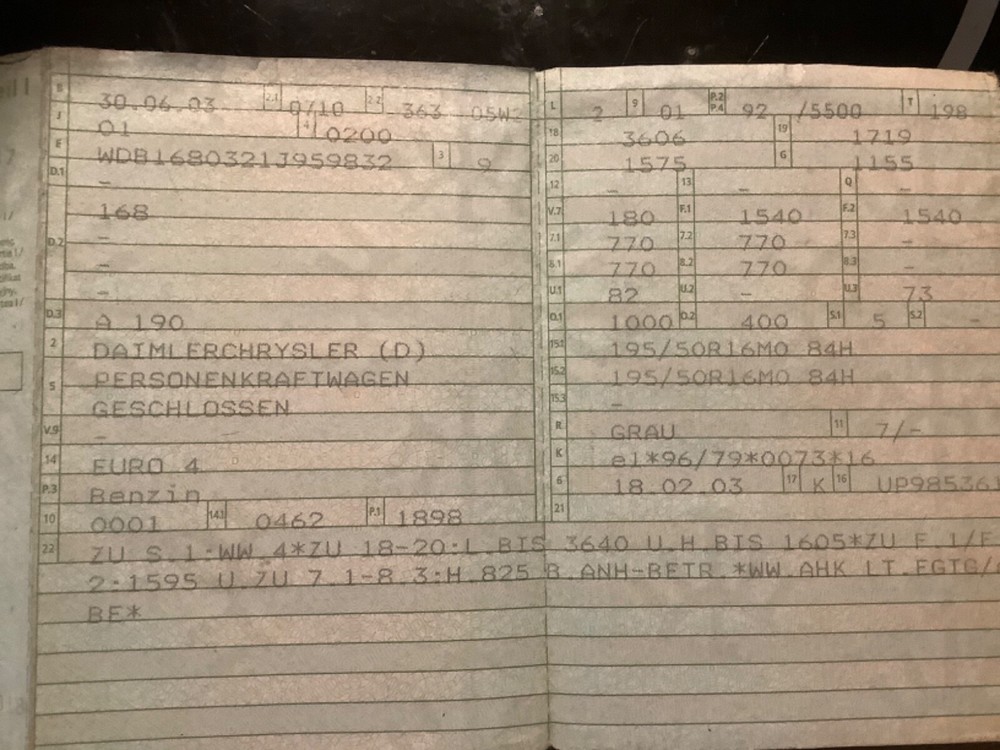 B 30.06.03 2.1 0/10 2.2 363
J 01 4 0200
E WDB1680321J959832 3 9
D.1 –
168
D.2 –
–
–
D.3 A 190
2 DAIMLERCHRYSLER (D)
5 PERSONENKRAFTWAGEN
GESCHLOSSEN
V.9 –
14 EURO 4
P.3 Benzin
10 0001 14.1 0462 P.1 1898
L 2 9 01 P.2 P.4 92 /5500 T 198
18 3606 19 1719
20 1575 G 1155
12 – 13 – Q –
V.7 180 F.1 1540 F.2 1540
7.1 770 7.2 770 7.3 –
8.1 770 8.2 770 8.3 –
U.1 82 U.2 – U.3 73
O.1 1000 O.2 400 S.1 5 S.2 –
15.1 195/50R16MO 84H
15.2 195/50R16MO 84H
15.3 –
R GRAU 11 7/–
K e1*96/79*0073*16
6 18.02.03 17 K 16
21
22 ZU S.1:WW.4*ZU 18-20:L.BIS 3640 U.H.BIS 1605*ZU F.1/F.
2:1595 U.ZU 7.1-8.3:H.825 B.ANH-BETR.*WW.AHK LT.EGTG/
BE*